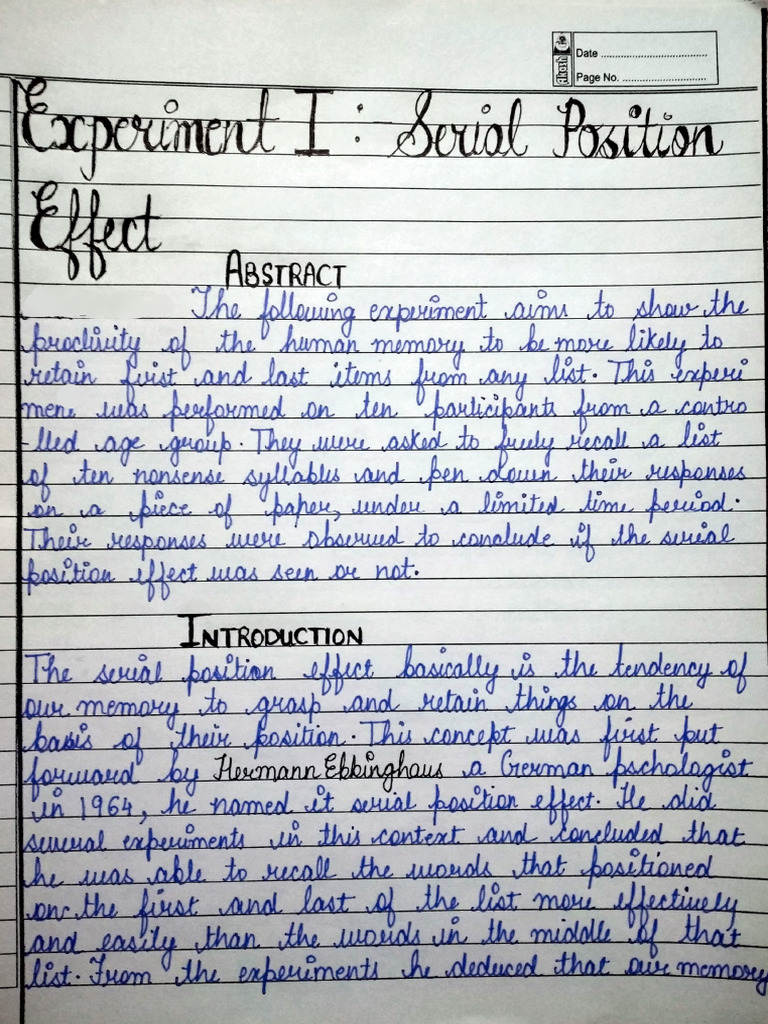 Date
Page No.
Experiment I : Serial Position
Effect
ABSTRACT
The following experiment aims to show the
proclivity of the human memory to be more likely to
retain first and last items from any list. This experi
mene was performed on ten participants from a contro
-lled age group. They were asked to freely recall a list
of ten nonsense syllables and pen down their responses
on a piece of paper, under a limited time period.
Their responses were observed to conclude if the serial
position effect was seen or not.
INTRODUCTION
The serial position effect basically is the tendency of
our memory to grasp and retain things on the
basis of their position. This concept was first put
forward by Hermann Ebbinghaus a German pschologist
in 1964, he named it serial position effect. He did
several experiments in this context and concluded that
he was able to recall the words that positioned
on the first and last of the list more effectively
and easily than the words in the middle of that
list. From the experiments he deduced that our memory